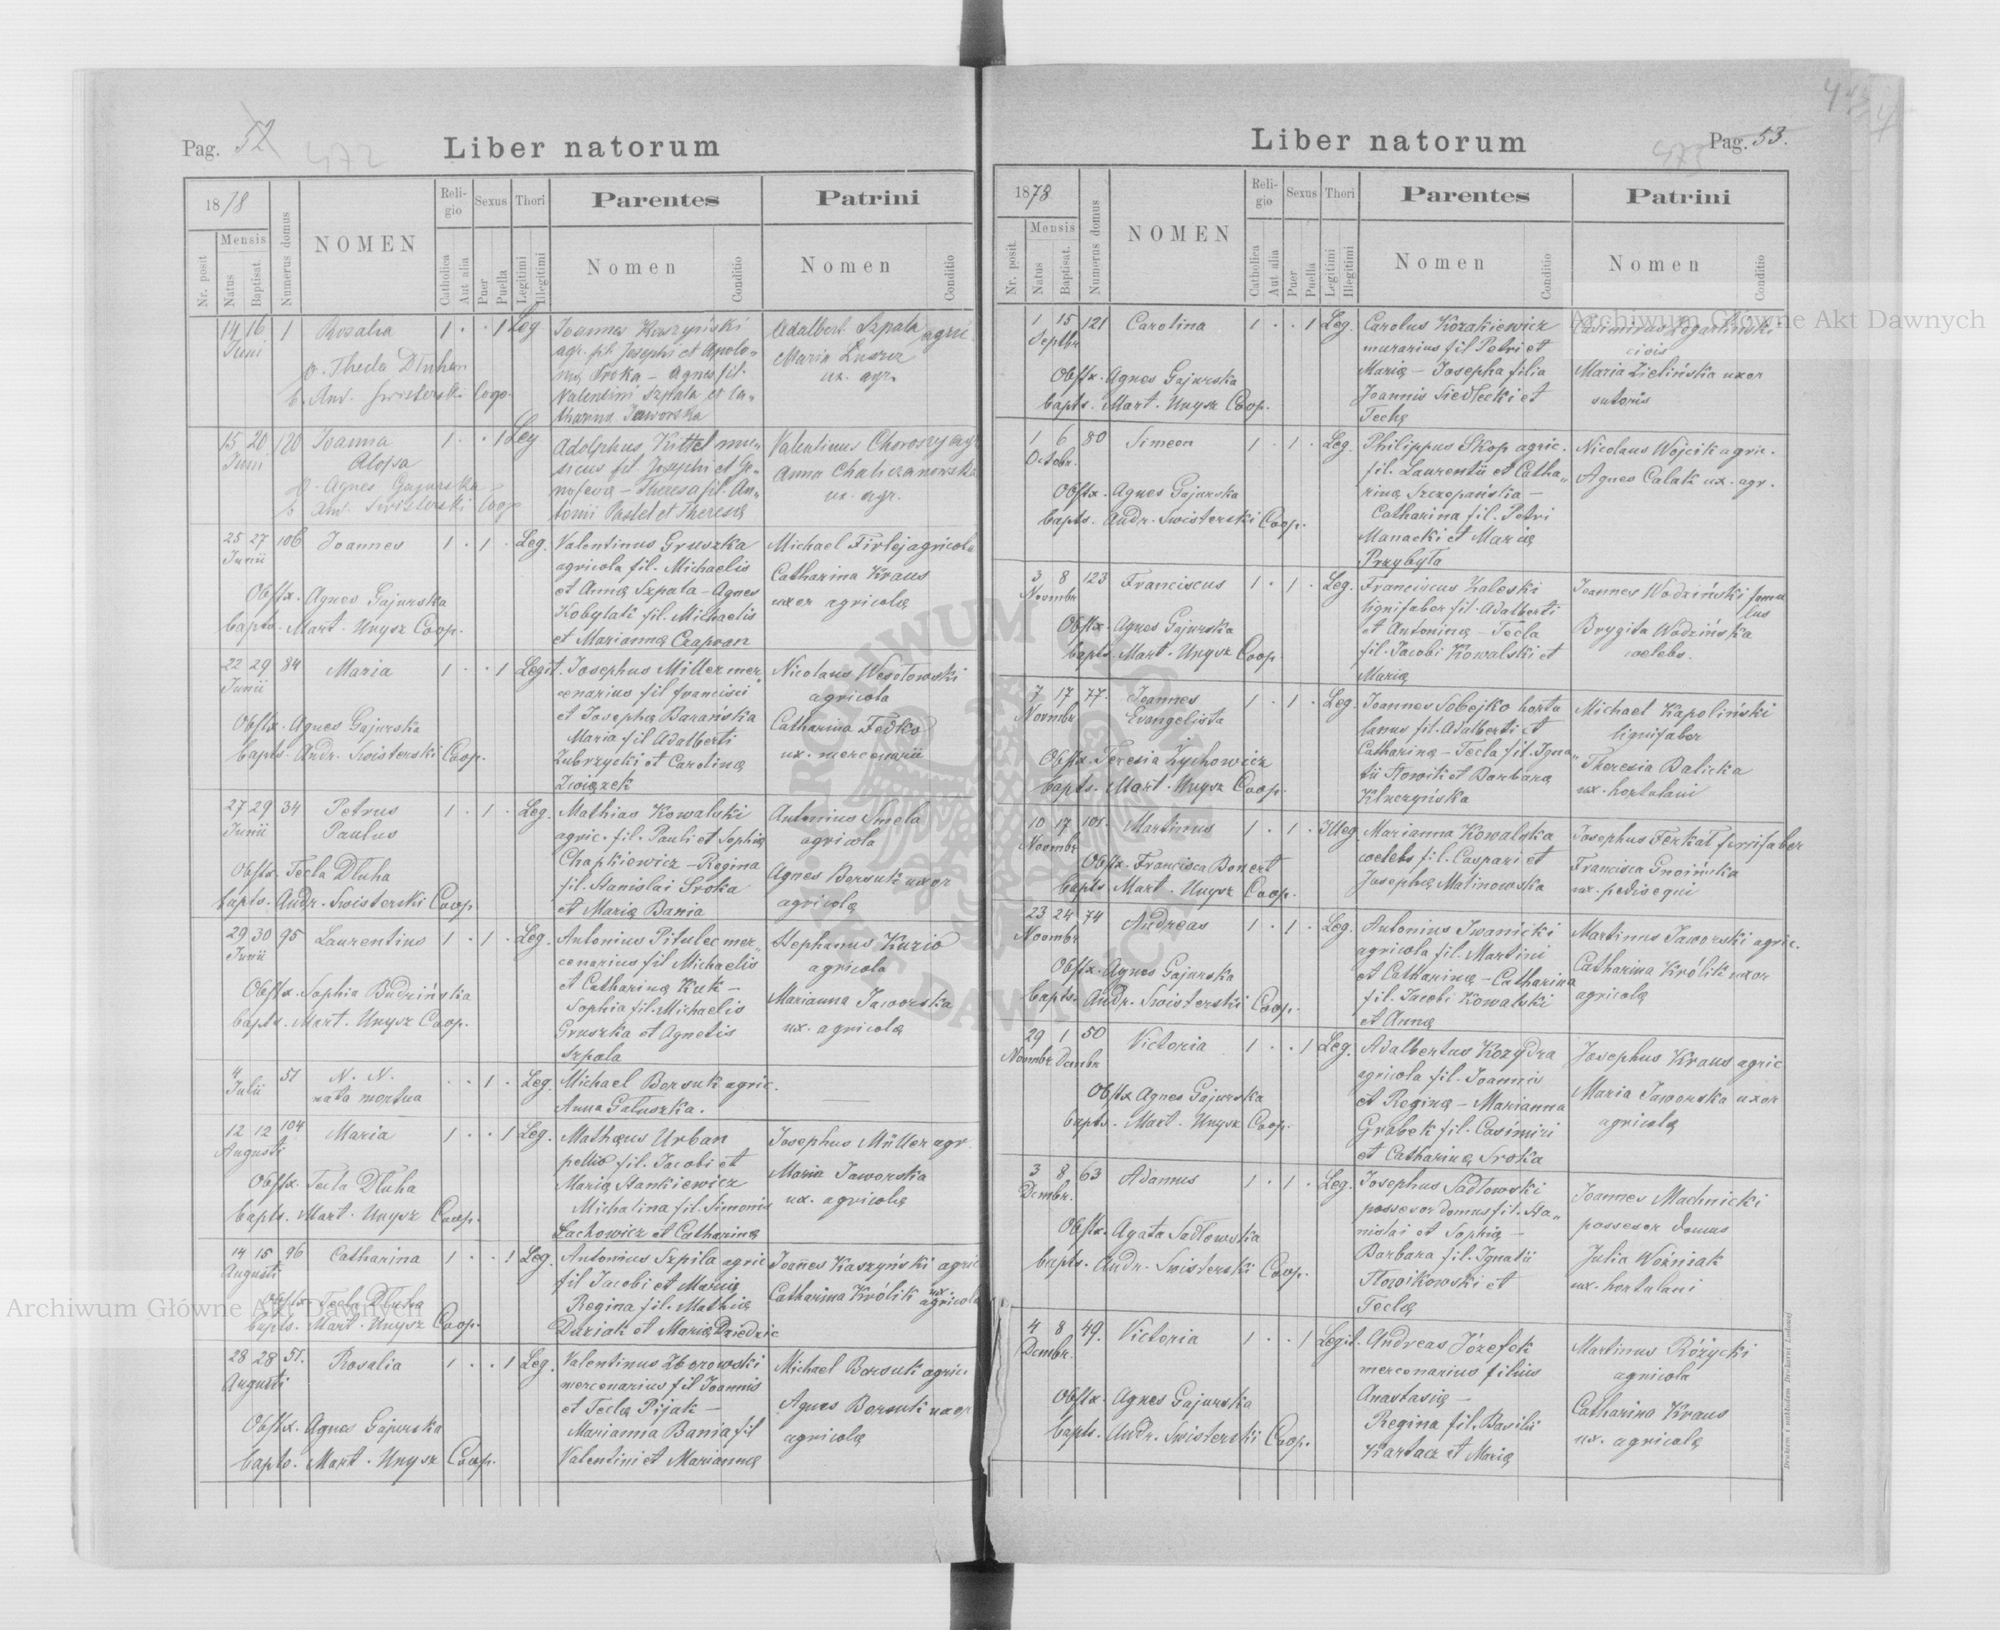 Pag. 52
472
Liber natorum
1878
Mensis
Nr. posit
Natus
Baptisat.
Numerus domus
NOMEN
Religio
Catholica
Aut alia
Sexus
Puer
Puella
Thori
Legitimi
Illegitimi
Parentes
Nomen
Conditio
Patrini
Nomen
Conditio
14 16 1 Rosalia 1 · · 1 Leg
Juni
o. Thecla Dłuha
b. And. Swisterski Coop.
Joannes Kaszyński
agr. fil. Josephi et Apolo-
nia Sroka — Agnes fil.
Valentini Szpala et Ca-
tharina Jaworska
Adalbert Szpala agri
Maria
ux. agr.
15 20 120 Joanna 1 · · 1 Leg
Juni Aloysa
o. Agnes Gajurska
b. And. Swisterski Coop
Adolphus Kittel mu-
sicus fil Josephi et Ge-
nofeva — Theresa fil. An-
tonii Pastel et Theresia
Valentinus Choroszy agr
Anna Chaliczanowska
ux. agr.
25 27 106 Joannes 1 · 1 · Leg.
Junii
Obstx. Agnes Gajurska
bapts. Mart. Unysz Coop.
Valentinus Gruszka
agricola fil. Michaelis
et Anna Szpala — Agnes
Kobylak fil. Michaelis
et Marianna Czapran
Michael Firlej agricola
Catharina Kraus
uxor agricolæ
22 29 84 Maria 1 · · 1 Legit.
Junii
Obstx. Agnes Gajurska
bapts. Andr. Swisterski Coop.
Josephus Miller mer
cenarius fil francisci
et Josepha Barańska
Maria fil Adalberti
Zubrzycki et Carolina
Związek
Nicolaus Wesołowski
agricola
Catharina Fedko
ux. mercenarii
27 29 34 Petrus 1 · 1 · Leg.
Junii Paulus
Obstx. Tecla Dłuha
bapts. Andr. Swisterski Coop
Mathias Kowalski
agric. fil. Pauli et Sophia
Chapkiewicz — Regina
fil. Stanislai Sroka
et Maria Bania
Antonius Smela
agricola
Agnes Borsuk uxor
agricolæ
29 30 95 Laurentius 1 · 1 · Leg.
Junii
Obstx. Sophia Budzińska
bapts. Mart. Unysz Coop.
Antonius Pitulec mer-
cenarius fil Michaelis
et Catharina Kuk —
Sophia fil. Michaelis
Gruszka et Agnetis
Szpala
Stephanus Kuzio
agricola
Marianna Jaworska
ux. agricolæ
4 51 N. N. · · 1 · Leg.
Julii nata mortua
Michael Borsuk agric.
Anna Gałuszka.
12 12 104 Maria 1 · · 1 Leg.
Augusti
Obstx. Tecla Dłuha
bapts. Mart. Unysz Coop.
Mathæus Urban
pellio fil. Jacobi et
Maria Stankiewicz
Michalina fil. Simonis
Lachowicz et Catharina
Josephus Müller agr.
Maria Jaworska
ux. agricolæ
14 15 96 Catharina 1 · · 1 Leg.
Augusti
Obstx. Tecla Dłuha
bapts. Mart. Unysz Coop.
Antonius Szpila agric
fil Jacobi et Maria
Regina fil. Mathiæ
Duziak et Maria Dziedzic
Joañes Kaszyński agric
Catharina Królik ux. agricolæ
28 28 51. Rosalia 1 · · 1 Leg.
Augusti
Obstx. Agnes Gajurska
bapts. Mart. Unysz Coop.
Valentinus Zborowski
mercenarius fil Joannis
et Tecla Pijak —
Marianna Bania fil
Valentini et Marianna
Michael Borsuk agric
Agnes Borsuk uxor
agricolæ
Liber natorum
Pag. 53.
1878
Mensis
Nr. posit
Natus
Baptisat.
Numerus domus
NOMEN
Religio
Catholica
Aut alia
Sexus
Puer
Puella
Thori
Legitimi
Illegitimi
Parentes
Nomen
Conditio
Patrini
Nomen
Conditio
1 15 121 Carolina 1 · · 1 Leg.
Septbr
Obstx. Agnes Gajurska
bapts. Mart. Unysz Coop.
Carolus Kozakiewicz
murarius fil Petri et
Maria — Josepha filia
Joannis Siedlecki et
Tecla
Casimirus
civis
Maria Zielińska uxor
sutoris
1 6 80 Simeon 1 · 1 · Leg.
Octobr.
Obstx. Agnes Gajurska
bapts. Andr. Swisterski Coop.
Philippus Skop agric.
fil. Laurentii et Catha-
rina Szczepańska —
Catharina fil. Petri
Manacki et Maria
Przybyła
Nicolaus Wojcik agric.
Agnes Calak ux. agr.
3 8 123 Franciscus 1 · 1 · Leg.
Novmbr
Obstx. Agnes Gajurska
bapts. Mart. Unysz Coop.
Franciscus Zaleski
lignifaber fil. Adalberti
et Antonina — Tecla
fil. Jacobi Kowalski et
Maria
Joannes Wodziński famu
lus
Brygita Wodzińska
coelebs.
7 17 77. Joannes 1 · 1 · Leg.
Novmbr Evangelista
Obstx. Teresia Zychowicz
bapts. Mart. Unysz Coop.
Joannes Sobejko hortu
lanus fil. Adalberti et
Catharina — Tecla fil. Igna
tii Nowik et Barbara
Kluczyńska
Michael Kapoliński
lignifaber
Theresia Balicka
ux. hortulani
10 17 101. Martinus 1 · 1 · Illeg.
Novmbr
Obstx. Francisca Bonert
bapts. Mart. Unysz Coop.
Marianna Kowalska
coelebs fil. Caspari et
Josepha Malinowska
Josephus Ferkal ferrifaber
Francisca Gnoińska
ux. pedisequi
23 24 74 Andreas 1 · 1 · Leg.
Novmbr
Obstx. Agnes Gajurska
bapts. Andr. Swisterski Coop.
Antonius Iwanicki
agricola fil. Martini
et Catharina — Catharina
fil. Jacobi Kowalski
et Anna
Martinus Jaworski agric.
Catharina Królik uxor
agricolæ
29 1 50 Victoria 1 · · 1 Leg.
Novmbr Dcmbr
Obstx Agnes Gajurska
bapts. Mart. Unysz Coop.
Adalbertus Kozydra
agricola fil. Joannis
et Regina — Marianna
Grabek fil. Casimiri
et Catharina Sroka
Josephus Kraus agric
Maria Jaworska uxor
agricolæ
3 8 63 Adamus 1 · 1 · Leg.
Dcmbr.
Obstx. Agata Sadłowska
bapts. Andr. Swisterski Coop.
Josephus Sadłowski
possesor domus fil. Sta-
nislai et Sophia —
Barbara fil. Ignatii
Słowikowski et
Tecla
Joannes Machnicki
possesor domus
Julia Woźniak
ux. hortulani
4 8 49. Victoria 1 · · 1 Legit.
Dcmbr.
Obstx. Agnes Gajurska
bapts. Andr. Swisterski Coop.
Andreas Józefek
mercenarius filius
Anastasia —
Regina fil. Basilii
Kartacz et Maria
Martinus Różycki
agricola
Catharina Kraus
ux. agricolæ
Archiwum Główne Akt Dawnych
Archiwum Główne Akt Dawnych
ARCHIWUM GŁÓWNE AKT DAWNYCH